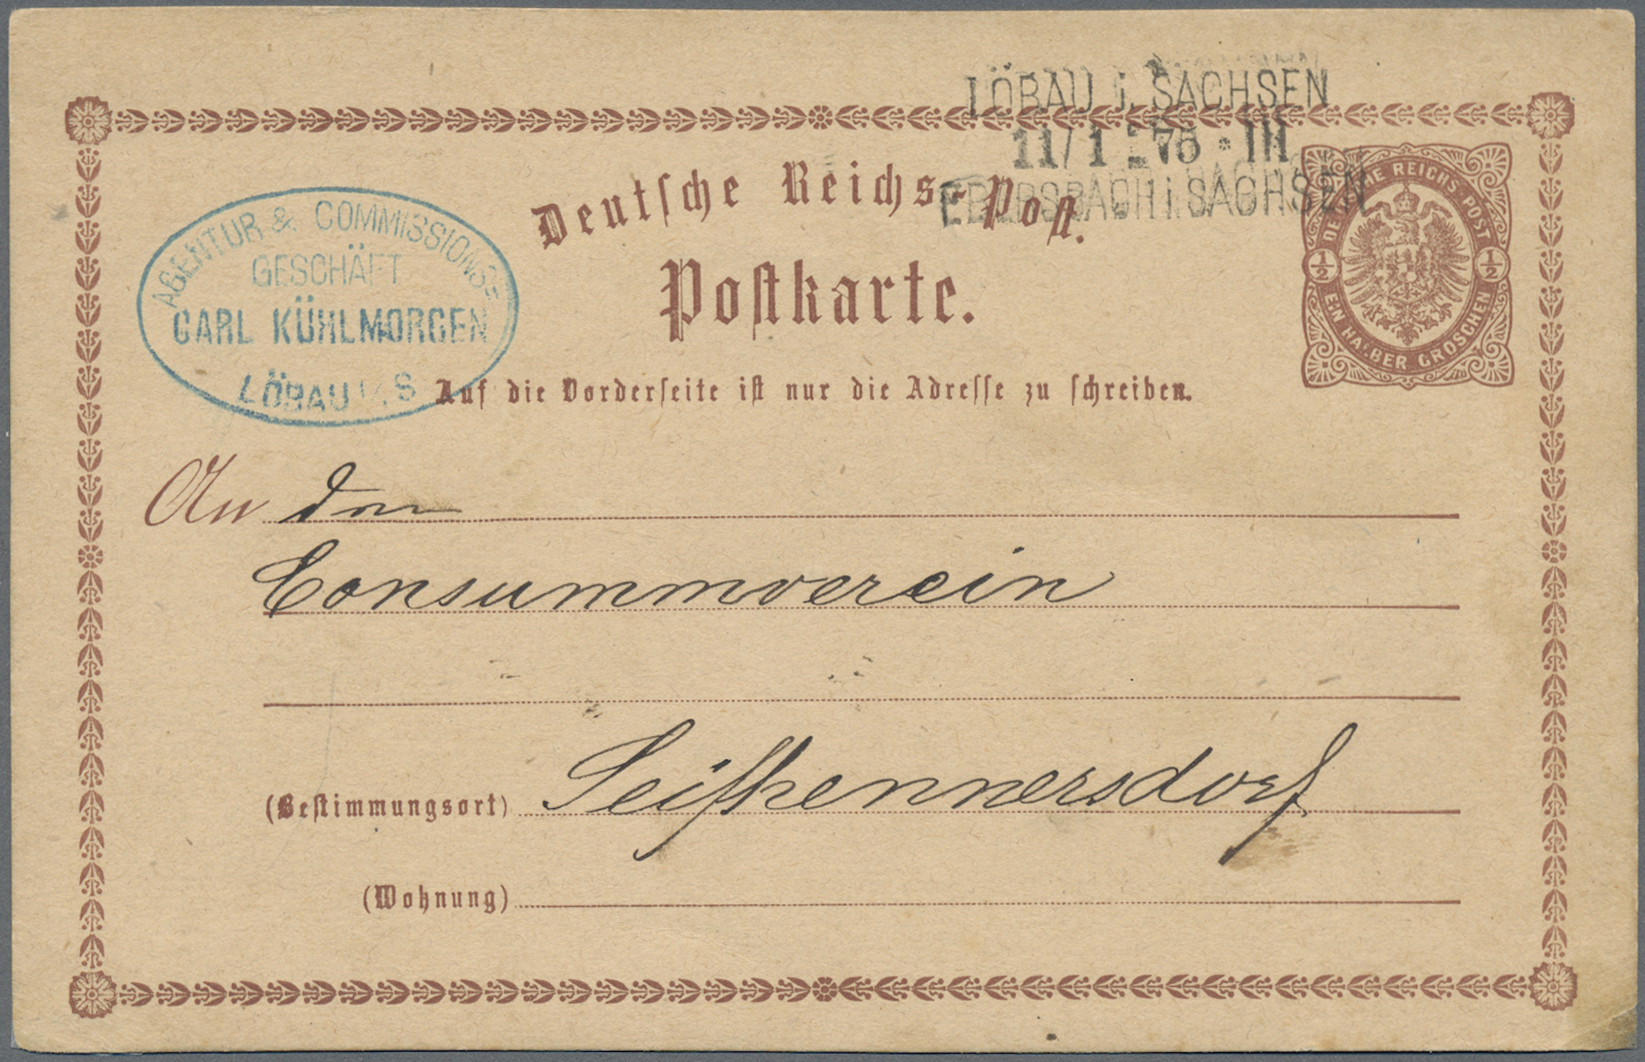 LÖBAU i. SACHSEN
11/1 75 * III
EBERSBACH i SACHSEN
Deutsche Reichs-Post.
Postkarte.
DEUTSCHE REICHS-POST
1/2 1/2
EIN HALBER GROSCHEN
AGENTUR & COMMISSIONS-
GESCHÄFT
CARL KÜHLMORGEN
LÖBAU i/S
Auf die Vorderseite ist nur die Adresse zu schreiben.
An den
Consummverein
(Bestimmungsort) Seifhennersdorf
(Wohnung)